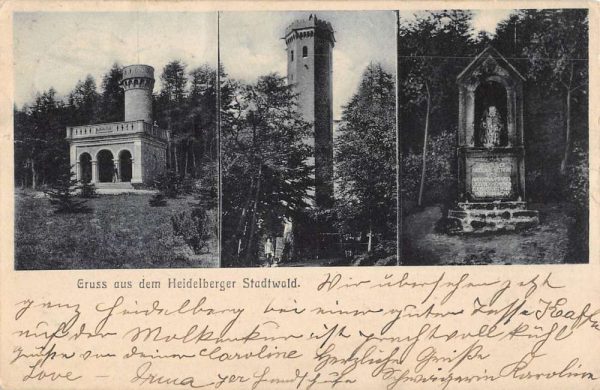 Gruss aus dem Heidelberger Stadtwald.
Wir übersehen jetzt
ganz Heidelberg bei einer guten Tasse Kaffe
auf der Molkenkur ist prachtvoll kühl
Grüße von deiner Caroline Herzliche Grüße
Love – Irma Schwägerin Karoline